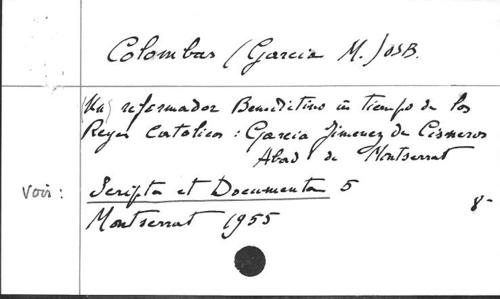 Colombas (Garcia M.) OSB.
(Un) reformador Benedictino en tiempo de los
Reyes Catolicos : Garcia Jimenez de Cisneros
Abad de Montserrat
Voir : Scripta et Documenta 5
Montserrat 1955
8-